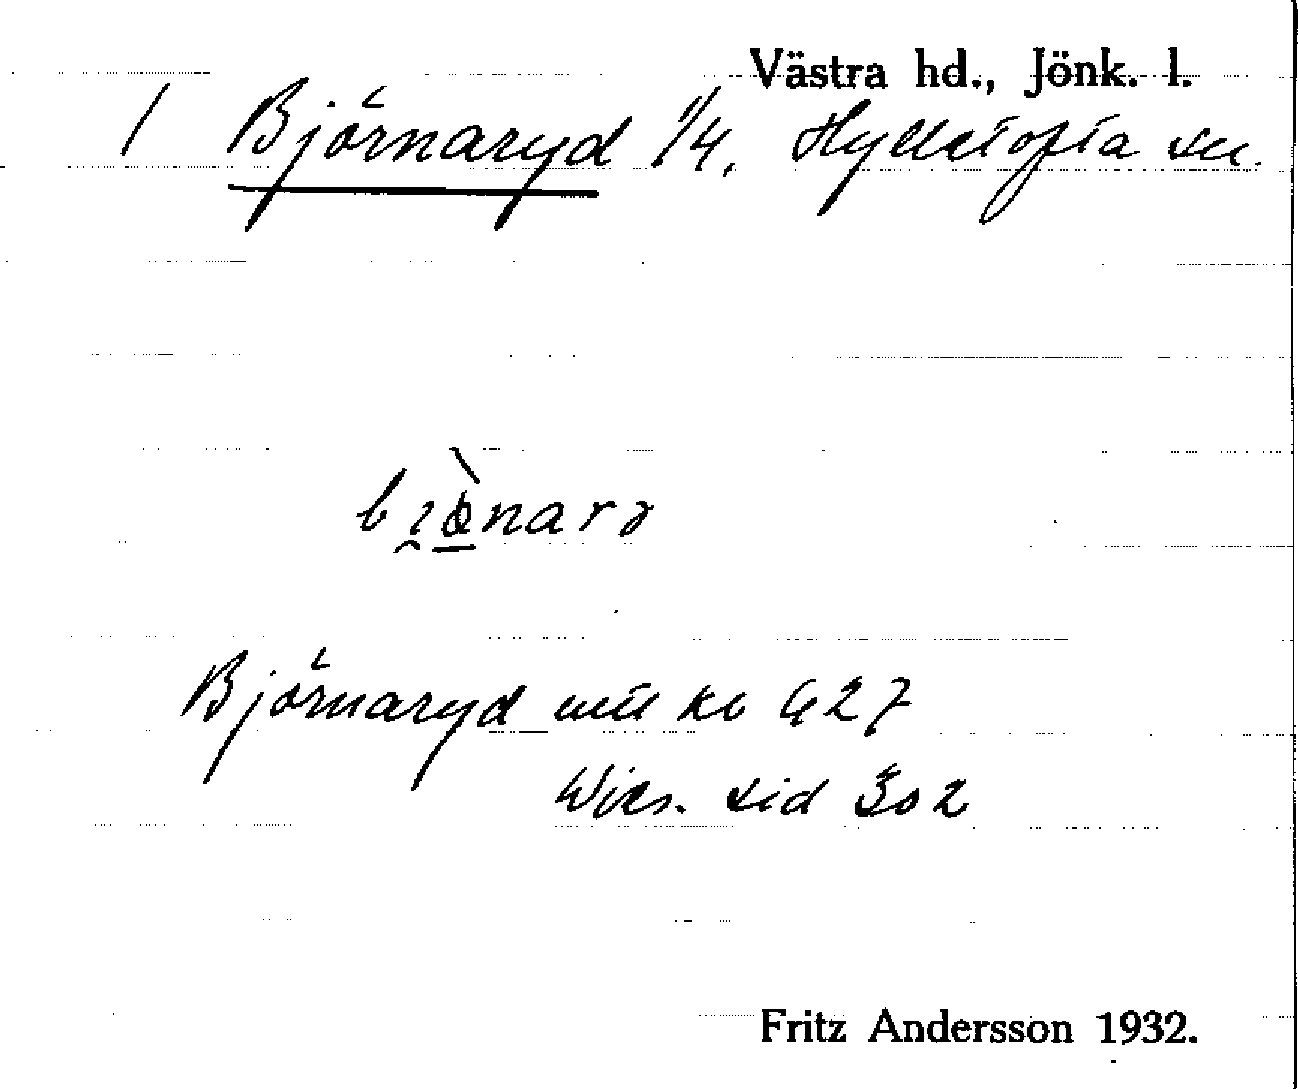 Västra hd., Jönk. l.
1 Björnaryd 1/4. Hylletofta sn.
Björnaryd mtl kb 627
Wies. sid 302
Fritz Andersson 1932.